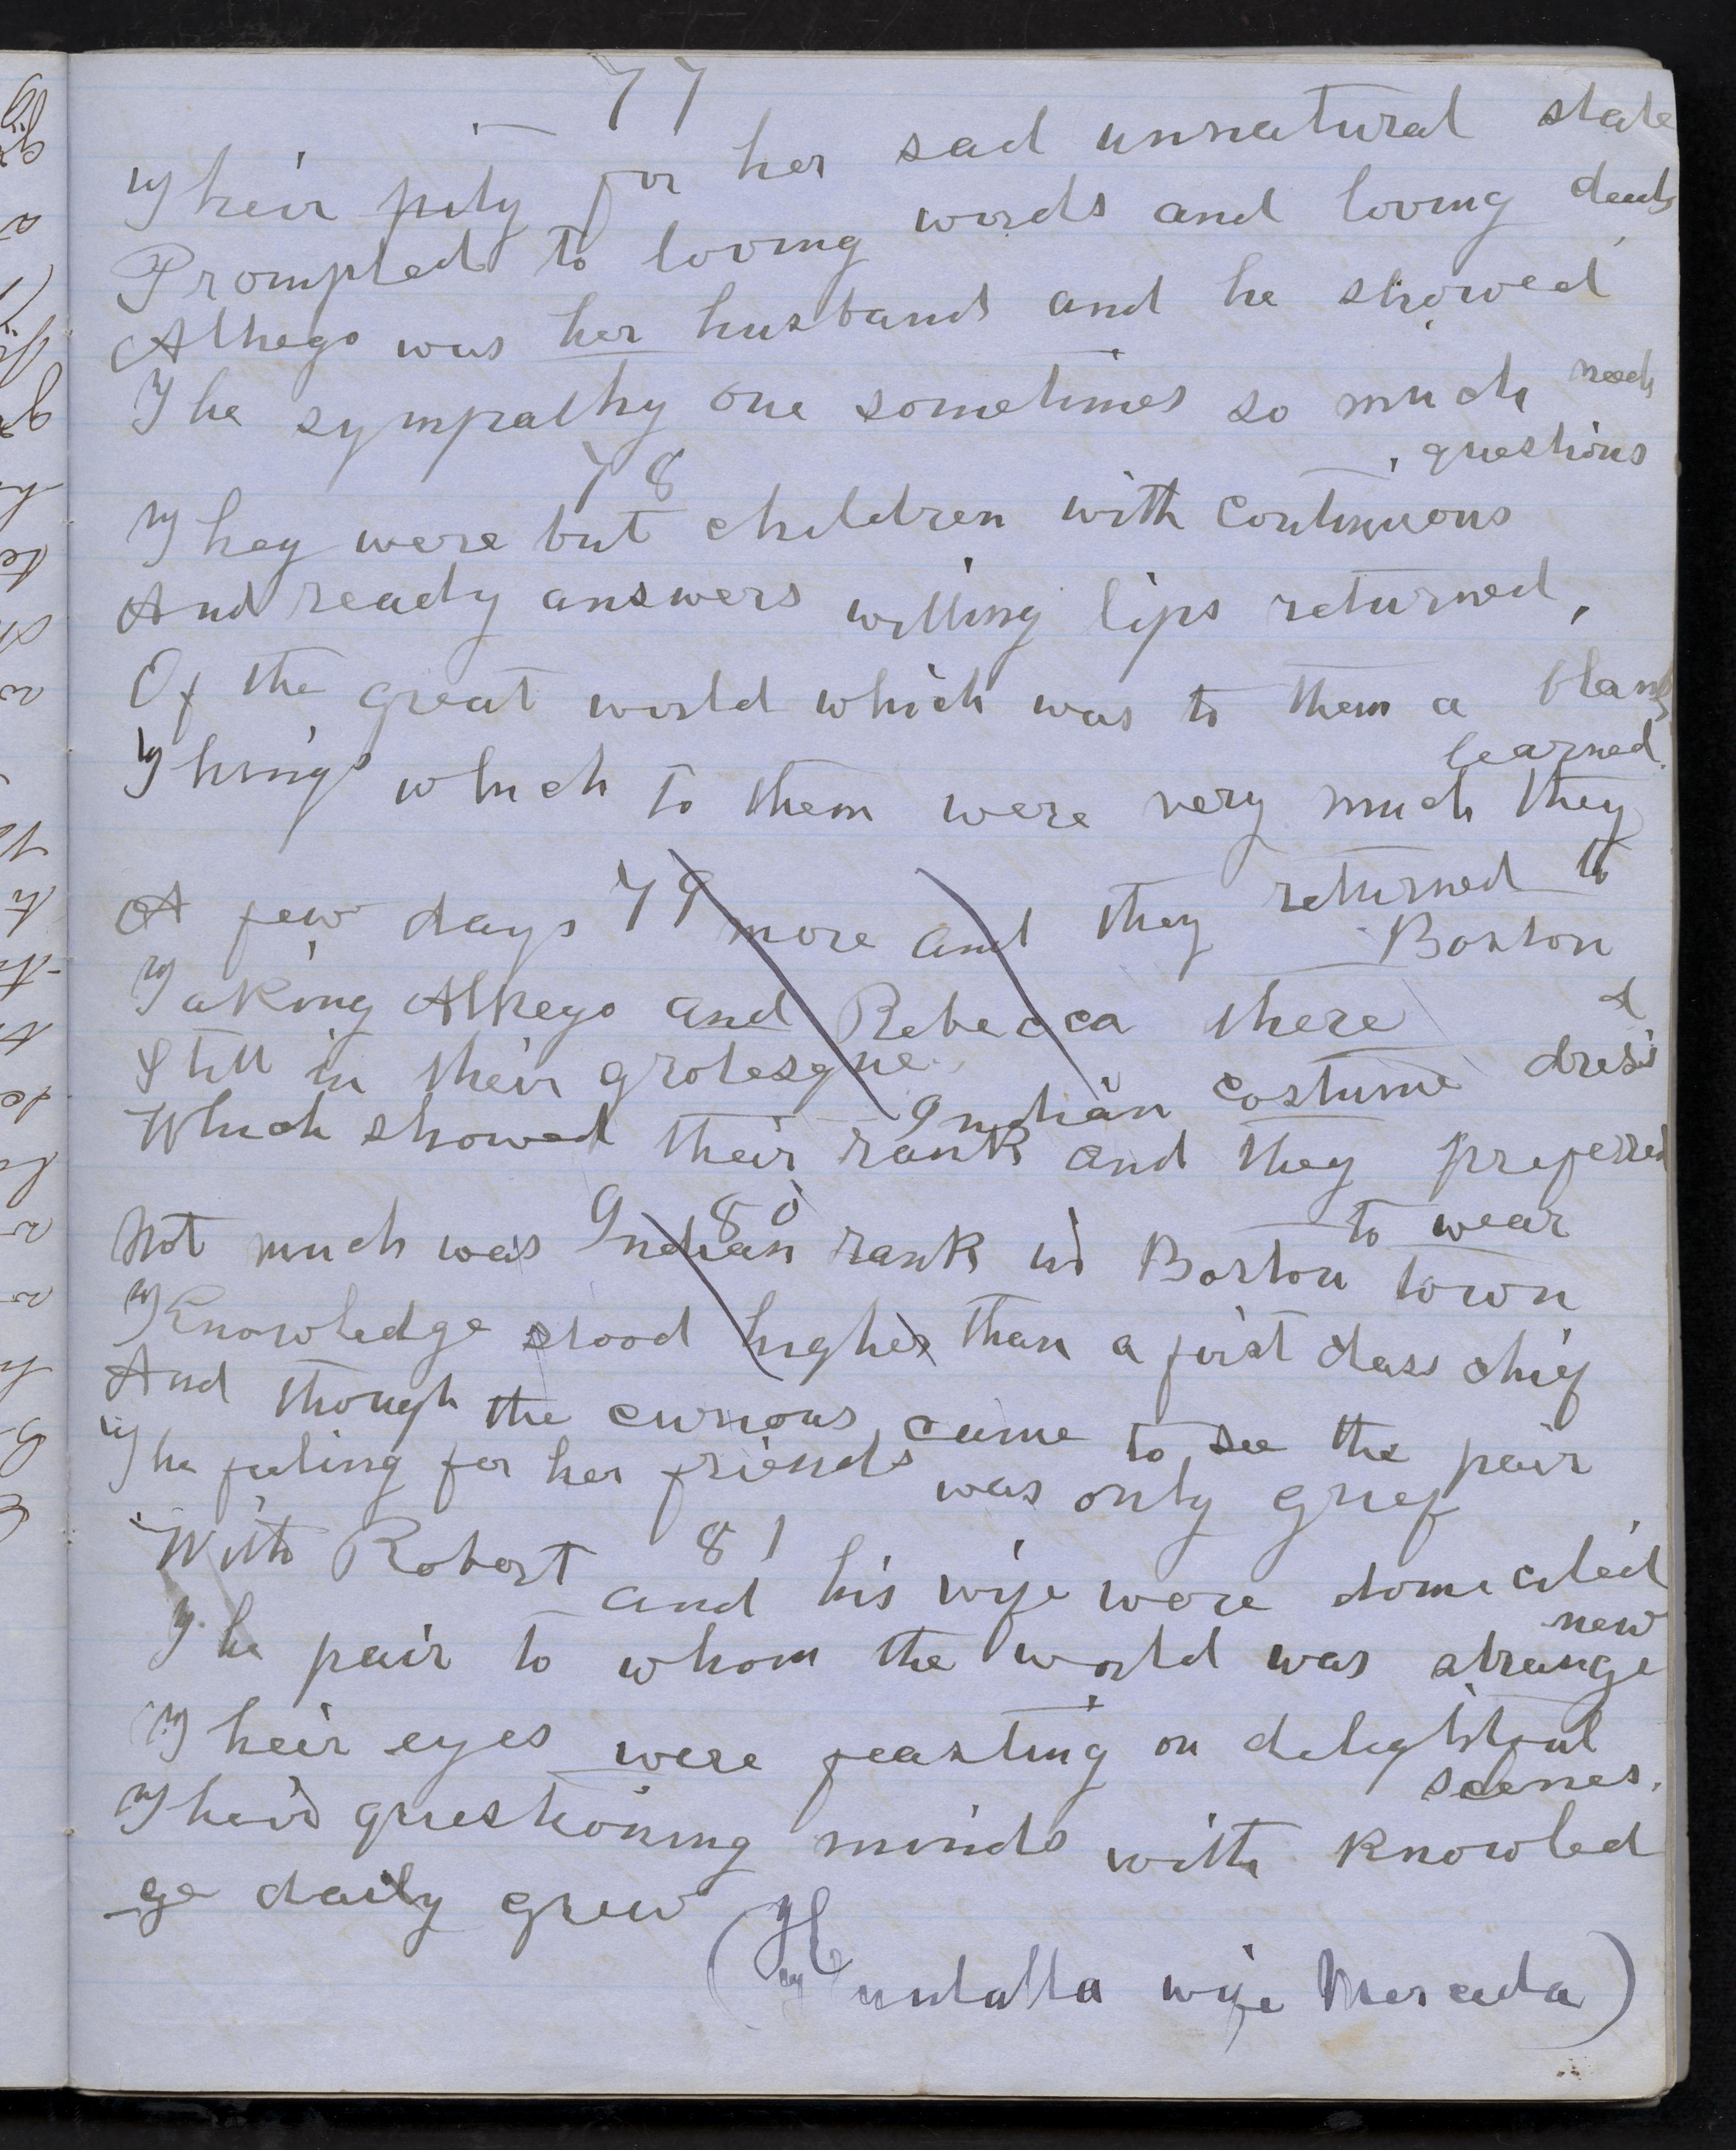 77
Their pity for her sad unnatural state
Prompted to loving words and loving deeds
Alkego was her husband and he showed
The sympathy one sometimes so much needs
78
They were but children with continuous questions
And ready answers willing lips returned,
Of the great world which was to them a blank
Things which to them were very much they learned.
79
A few days more and they returned to Boston
Taking Alkego and Rebecca there
Still in their grotesque Indian costume dress'd
Which showed their rank and they preferred to wear
80
Not much was Indian rank in Boston town
Knowledge stood higher than a first class chief
And though the curious came to see the pair
The feeling for her friends was only grief
81
With Robert and his wife were domeciled
The pair to whom the world was strange new
Their eyes were feasting on delightful scenes.
Their questioning minds with knowled
-ge daily grew
(Huntalla wife Mercada)